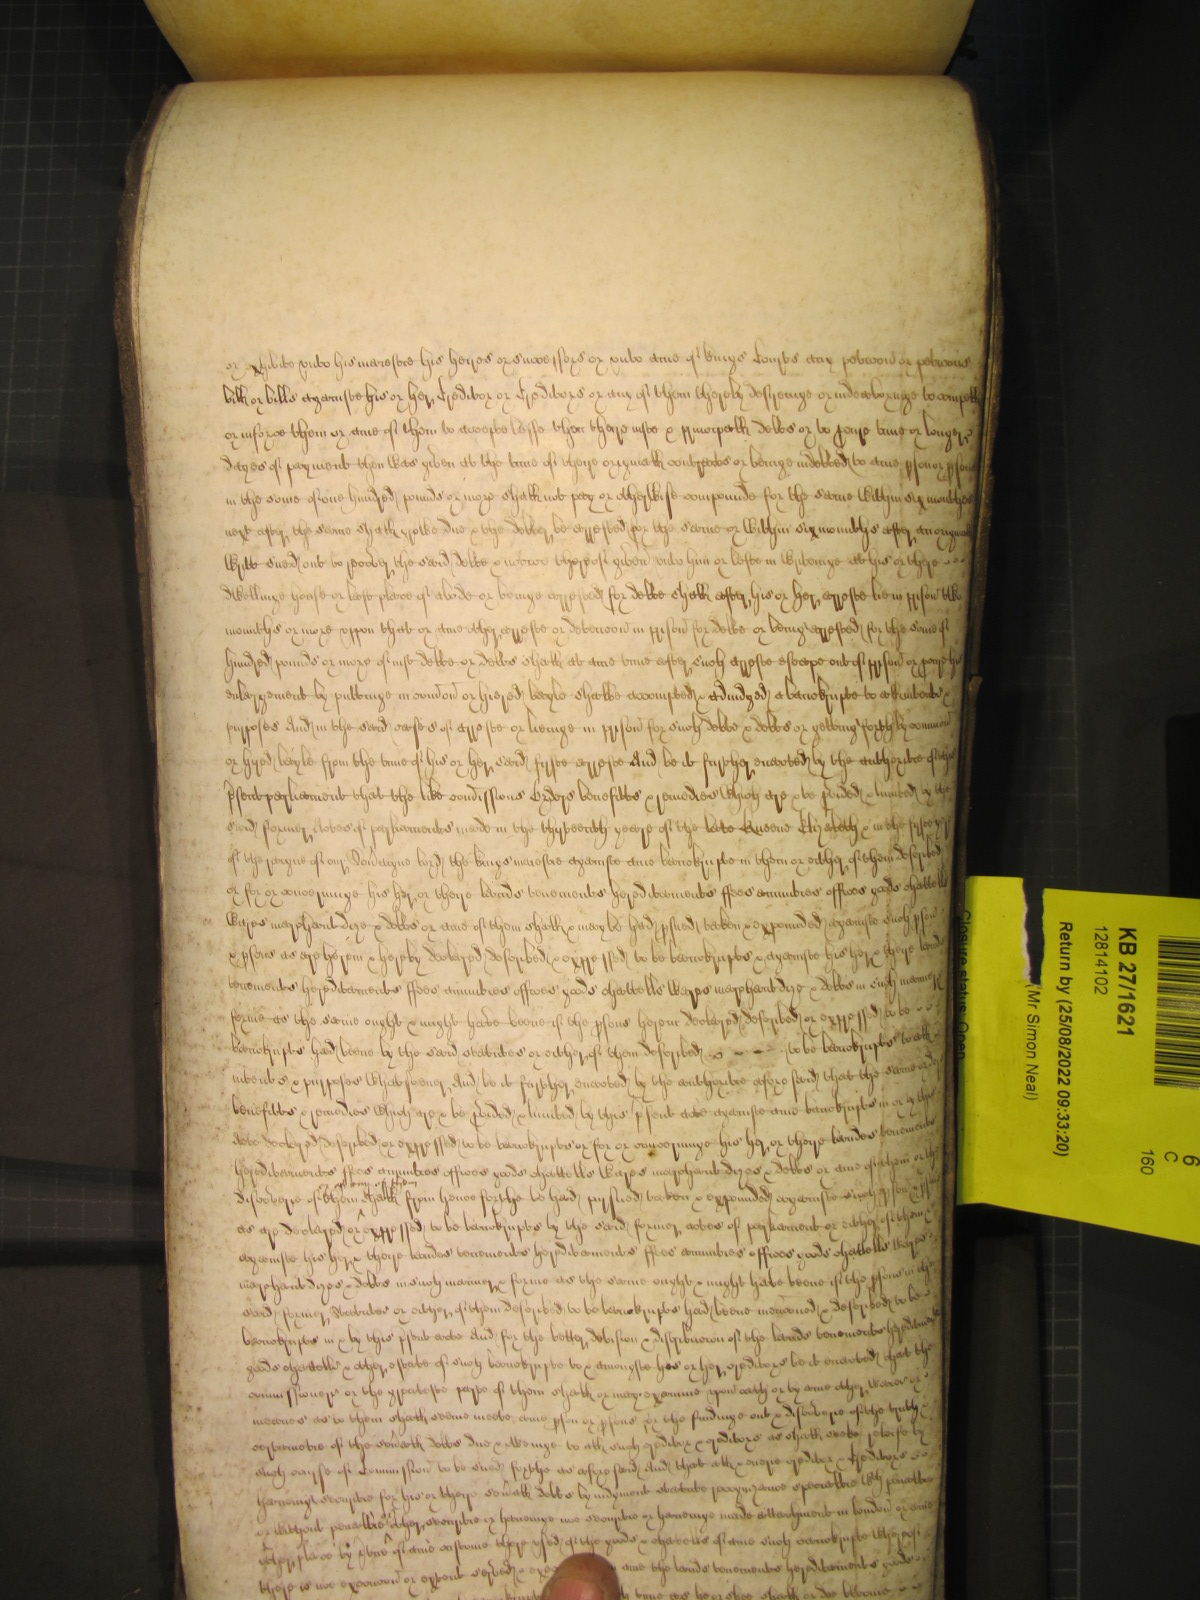 or exhibite unto his maiestie his heires or successors or unto anie of kings Courts any peticon or peticons
bill or bills againste his or her Creditor or Creditors or any of them thereby desireinge or indeavoringe to compell
or inforce them or anie of them to accepte lesse then there iuste & principall debts or to procure time or longer
dayes of payment then was given at the time of theire originall contracts or beinge indebted to anie pson or psons
in the some of one hundred pounds or more shall not pay or otherwise compounde for the same within six monthes
next after the same shall growe due & the debtor be arrested for the same or within six monthes after an originall
writt sued out to recover the said debte & notice thereof given unto him or lefte in writeinge at his or there
dwellinge house or last place of abode or beinge arrested for debte shall after his or her arreste lie in prison two
monthes or more uppon that or anie other arreste or detencon in prison for debte or beinge arrested for the some of
hundred pounds or more of iust debte or debts shall at anie time after such arreste escape out of prison or procure his
enlargement by puttinge in comon or hiered bayle shalbe accompted & adiudged a banckrupte to all intents &
purposes And in the said cases of arreste or lieinge in prison for such debte & debts or gettinge forth by comon
or hyred bayle from the time of his or her said firste arreste And be it further enacted by the authoritie of this
psent parliament that the like comissions Orders benefitts & remedies which are & be pvided & limited by the
said former Actes of parliaments made in the thirteenth yeare of the late Queene Elizabeth & in the firste yere
of the raigne of our Soveraigne lord the kings maiestie againste anie banckrupte in them or either of them described
or for or concerninge his her or theire lands tenements hereditaments ffees annuities offices goods chattells
wares marchandize & debts or anie of them shall & may be had psued taken & expounded againste such pson
& psons as are herein & hereby declared described & expressed to be banckrupts & againste his her & theire lands
tenements hereditaments ffees annuities offices goods chattells wares marchandize & debts in such manner &
forme as the same ought & might have beene if the psons herein declared described or expressed to be
banckrupts had beene by the said statutes or either of them described to be banckrupts to all
intents & purposes whatsoever And be it further enacted by the authoritie aforesaid that the same orders
benefitts & remedies which are & be pvided & limited by this psent acte againste anie banckrupts in or by this
Acte declared described or expressed to be banckrupts or for or concerninge his her or theire landes tenements
hereditaments ffees annuities offices goods chattells wares marchandizes & debts or anie of them or the
discoverie of them or any of them shall from henceforthe be had pursued taken & expounded againste such pson & psons
as are declared or expressed to be banckrupts by the said former actes of parliament or either of them &
againste his her & theire landes tenements hereditaments ffees annuities offices goods chattells wares
marchandizes & debts in such manner & forme as the same ought & might have beene if the psons in the
said former Statutes or either of them described to be banckrupts had beene mencioned & described to be
banckrupts in & by this psent acte And for the better division & distribucon of the lands tenements hereditaments
goods chattells & other estate of such banckrupte to & amongste his or her creditors be it enacted that the
comissioners or the greateste parte of them shall or may examine upon oath or by anie other waies or
meanes as to them shall seeme meete anie pson or psons for the findinge out & discoverie of the truth &
certaintie of the severall debts due & oweinge to all such creditor & creditors as shall seeke releife by
such course of Comission to be sued forthe as aforesaid And that all & everie creditor & Creditors
haveinge securitie for his or theire severall debts by iudgment statute recognizance specialtie with penaltie
or without penaltie or other securitie or haveinge noe securitie or haveinge made attachments in London or anie
other place by vertue of anie custome there used of the goods & chattells of anie such banckrupte whereof
there is noe execucon or extent served & anie the lands tenements hereditaments goods
time as he or shee shall or doe become